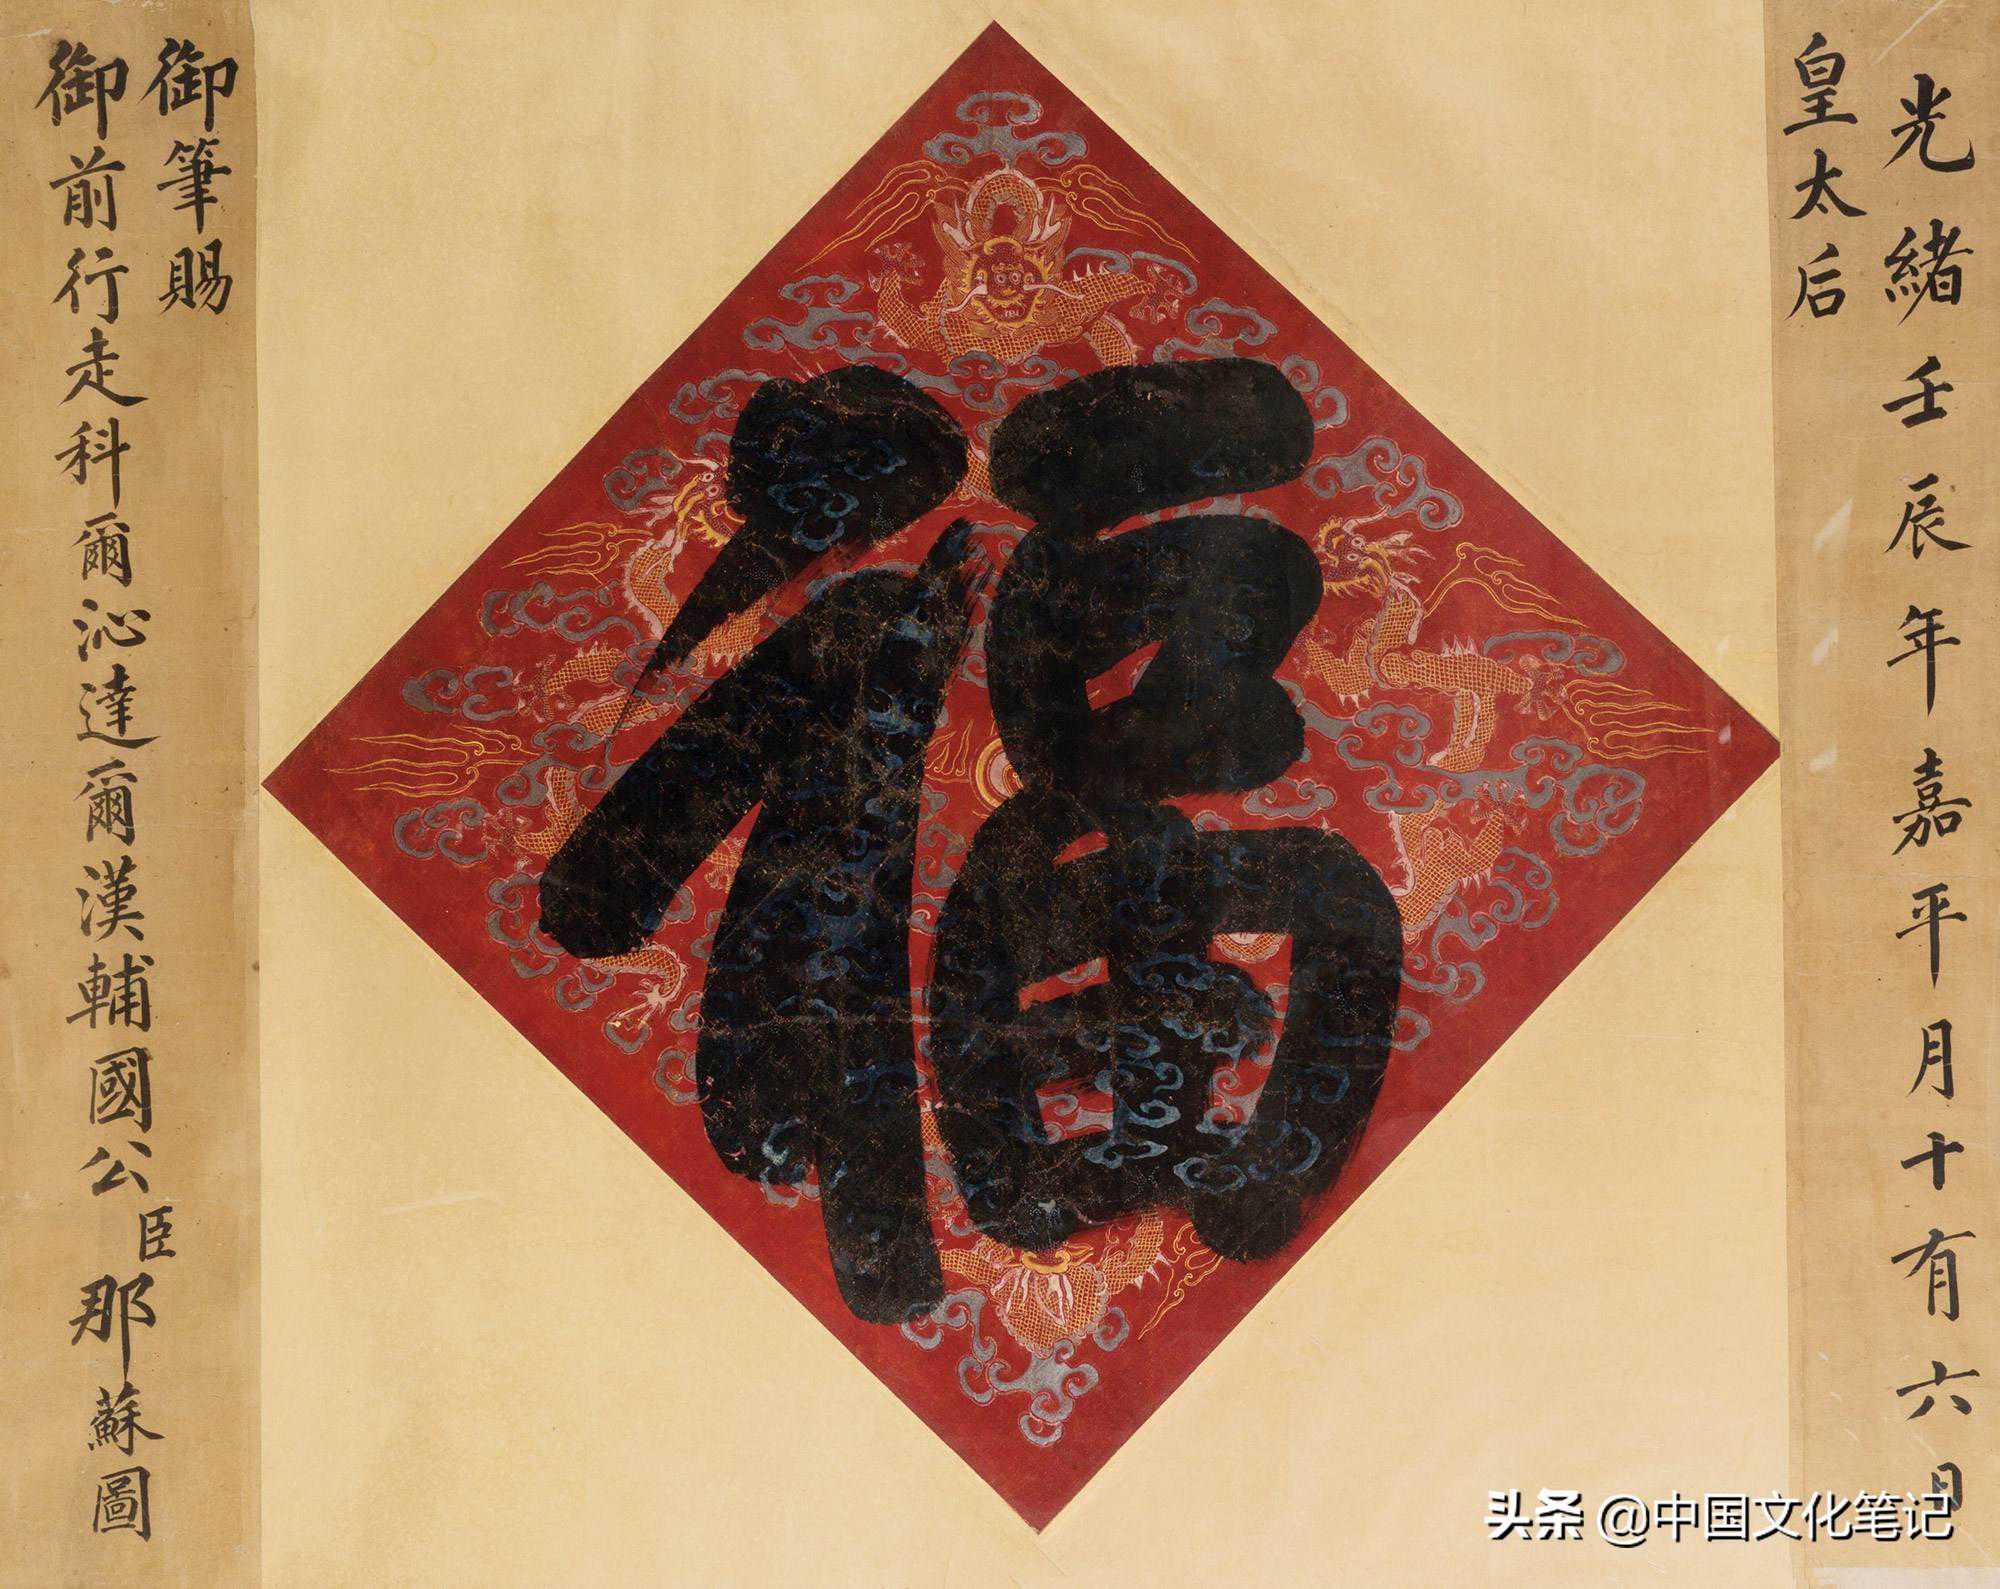 光緒壬辰年嘉平月十有六日
皇太后
福
御筆賜
御前行走科爾沁達爾漢輔國公臣那蘇圖
头条 @中国文化笔记